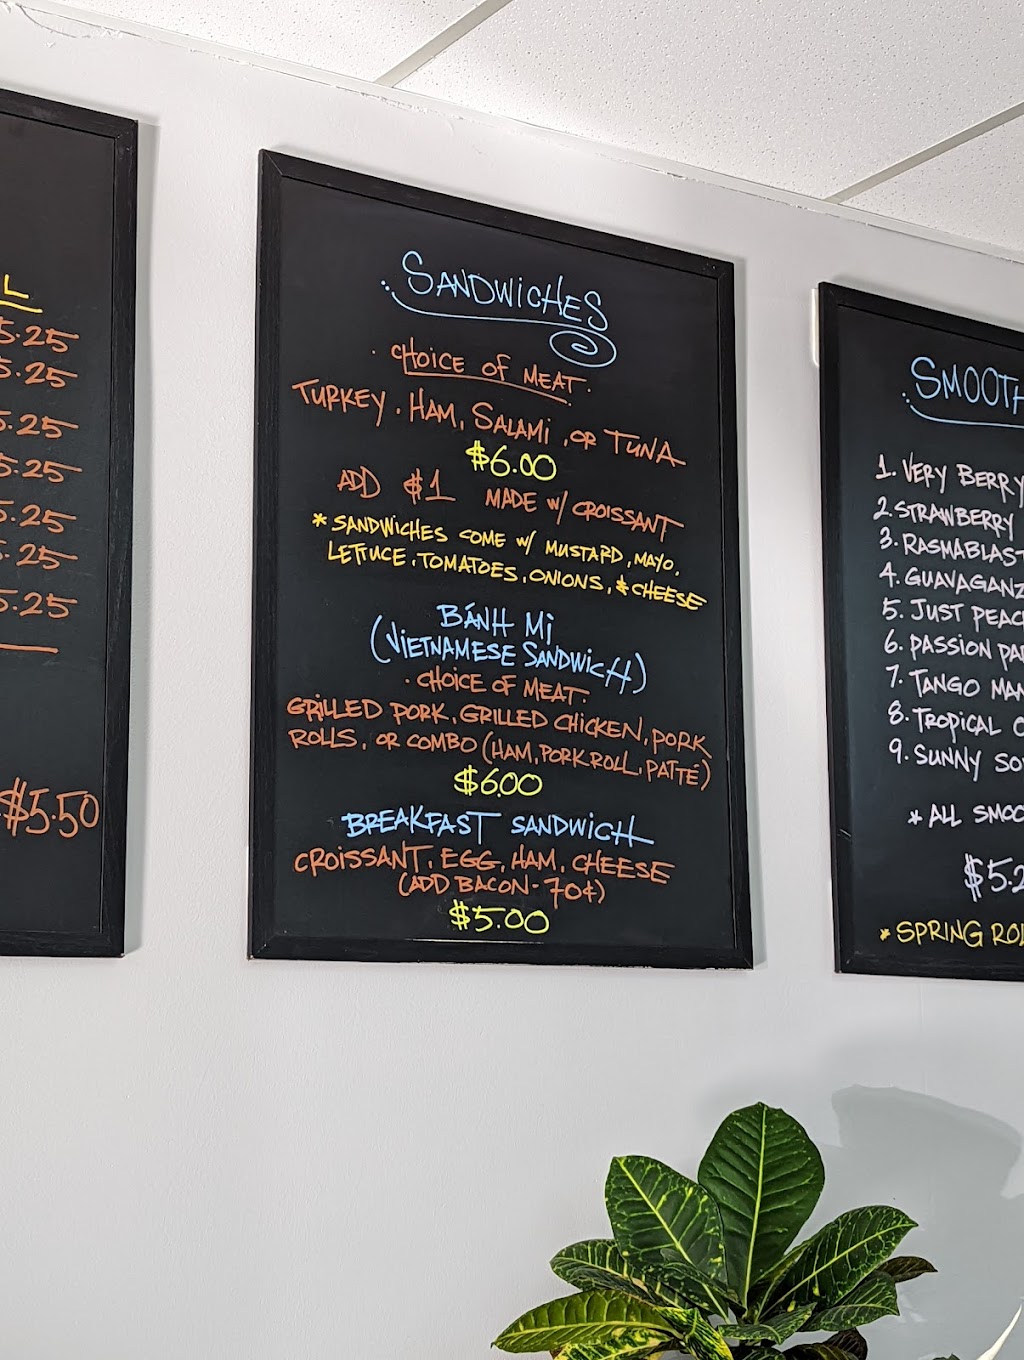 L
5.25
5.25
5.25
5.25
5.25
5.25
5.25
$5.50
SANDWiCHES
· CHOICE OF MEAT ·
TURKEY. HAM, SALAMi, OR TUNA
$6.00
ADD $1 MADE W/ CROISSANT
* SANDWICHES COME W/ MUSTARD, MAYO,
LETTUCE, TOMATOES, ONIONS, & CHEESE
BÁNH Mi
(VIETNAMESE SANDWICH)
· CHOICE OF MEAT.
GRILLED PORK, GRILLED CHICKEN, PORK
ROLLS, OR COMBO (HAM, PORK ROLL, PATTÉ)
$6.00
BREAKFAST SANDWICH
CROISSANT, EGG, HAM, CHEESE
(ADD BACON - 70¢)
$5.00
SMOOTH
1. VERY BERRY
2. STRAWBERRY
3. RASMABLAST
4. GUAVAGANZ
5. JUST PEAC
6. PASSION PA
7. TANGO MAN
8. TROPICAL
9. SUNNY SO
* ALL SMOO
$5.2
* SPRING ROL